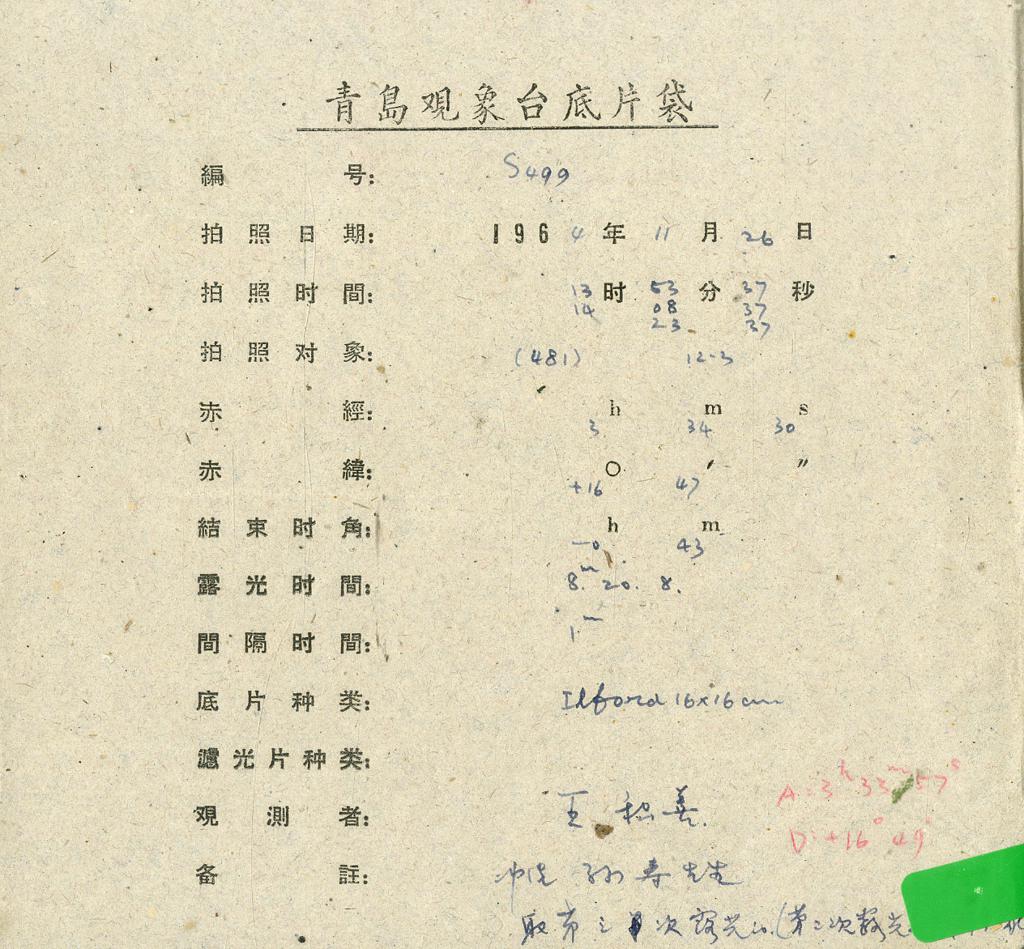 青島观象台底片袋
編号: S499
拍照日期: 1964年11月26日
拍照时間: 13时53分37秒
14 08 37
23 37
拍照对象: (481) 12.3
赤經: 3h 34m 30s
赤緯: +16° 47′ ″
結束时角: -0h 43m
露光时間: 8.m 20. 8.
間隔时間: 1m
底片种类: Ilford 16×16cm
濾光片种类:
观測者: 王 善
A: 3h 33m 57s
D: +16° 49′
备註: 先生
取第三次露光 (第二次露光